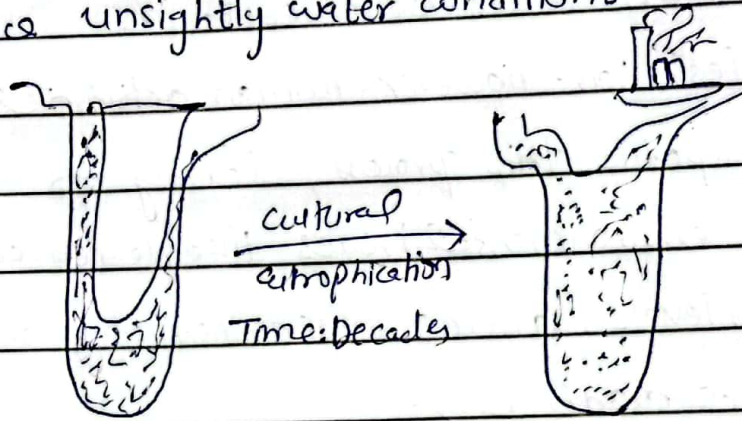 unsightly water conditions
cultural
eutrophication
Time: Decades